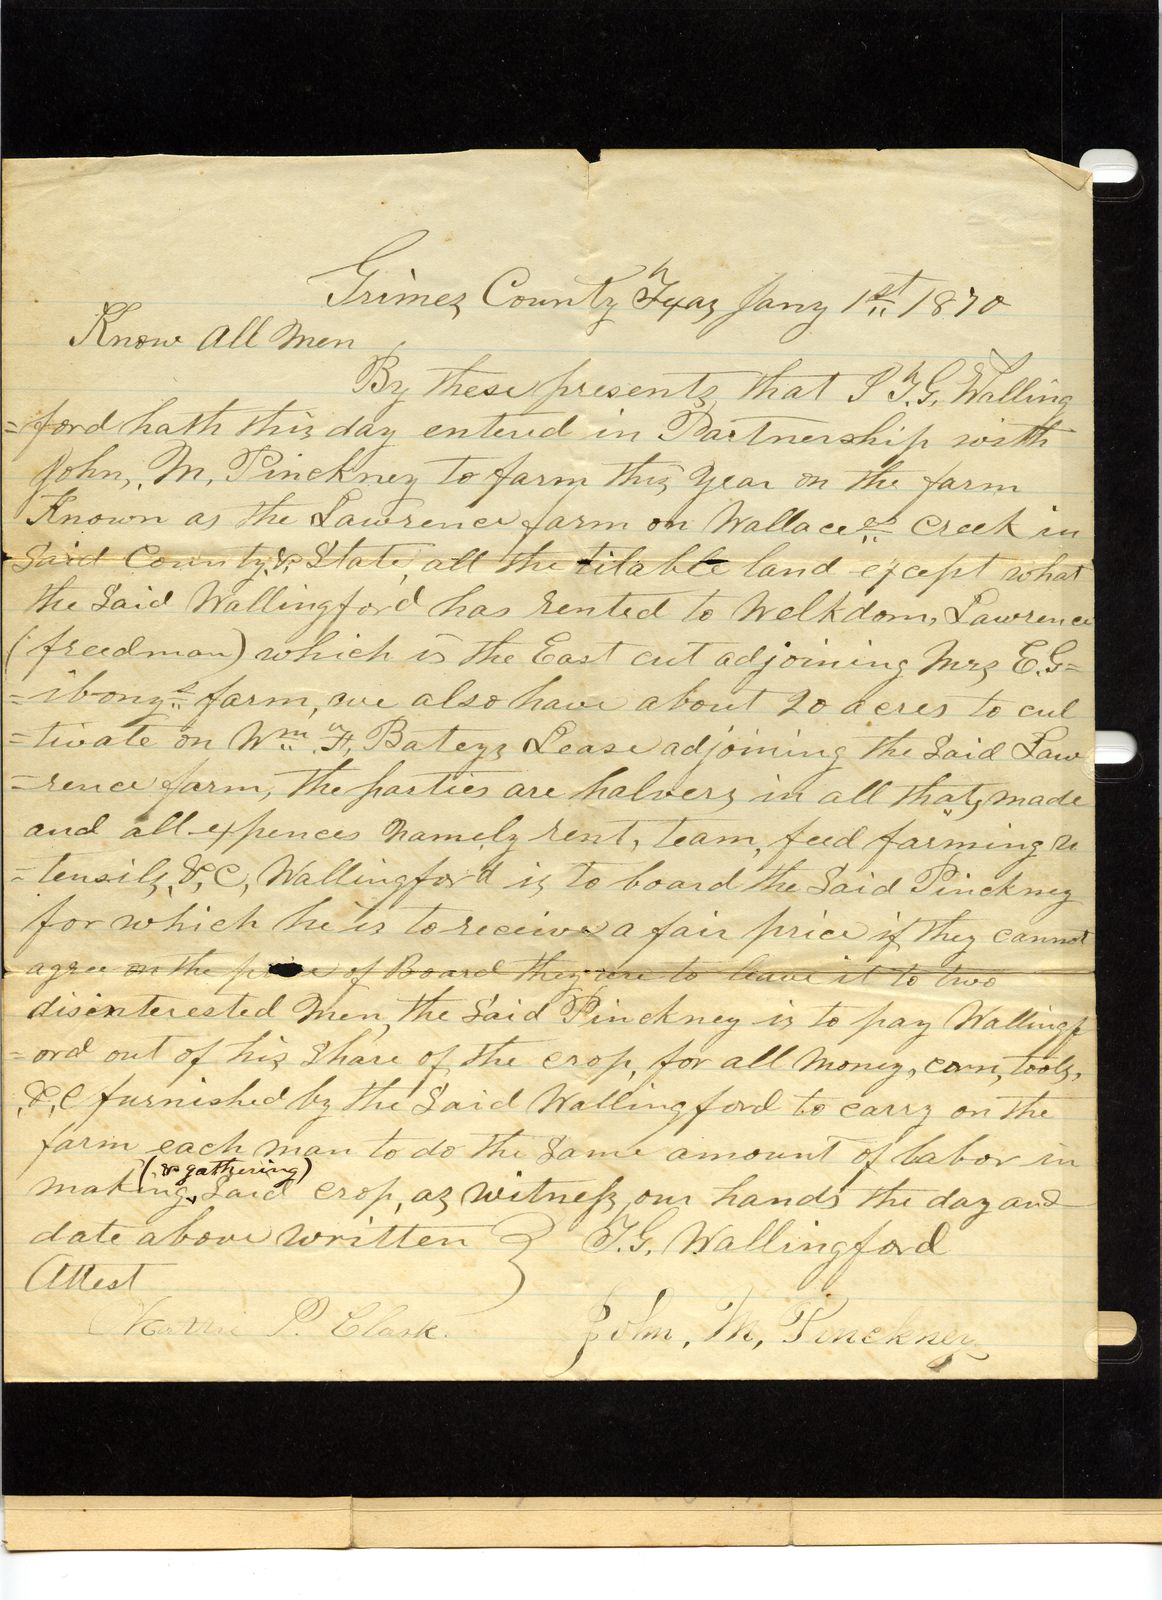 Grimes County Txas Jany 1st 1870
Know all men
By these presents that I T.G. Walling
=ford hath this day entered in Partnership with
John, M, Pinckney to farm this year on the farm
Known as the Lawrence farm on Wallace es Creek in
Said County & State, all the tilable land except what
the Said Wallingford has rented to Welkdom, Lawrence
(freedman) which is the East cut adjoining Mrs E. G=
=ibony s farm, we also have about 20 acres to cul
=tivate on Wm H, Bateys Lease adjoining the Said Law
=rence farm, the parties are halvers in all thats made
and all expences Namely rent, team, feed farming u
=tensils, &, C, Wallingford is to board the Said Pinckney
for which he is to receive a fair price if they cannot
agree on the price of Board they are to leave it to two
disinterested Men, the Said Pinckney is to pay Wallingf
=ord out of his Share of the crop, for all Money, corn, tools,
&, C furnished by the Said Wallingford to carry on the
farm each man to do the Same amount of labor in
(& gathering)
making Said crop, as witness our hands the day and
date above written } T.G. Wallingford
Attest
P. Clark.
John, M, Pinckney